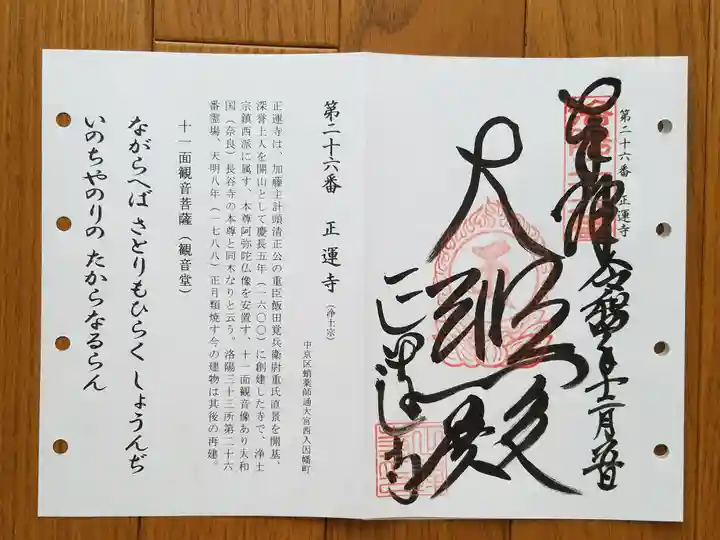 第二十六番 正運寺
奉拝
大悲殿
正運寺
第二十六番 正運寺(浄土宗)
中京区蛸薬師通大宮西入因幡町
正運寺は、加藤主計頭清正公の重臣飯田覚兵衛尉重氏直景を開基、
深誉上人を開山として慶長五年(一六〇〇)に創建した寺で、浄土
宗鎮西派に属す、本尊阿弥陀仏像を安置す、十一面観音像あり大和
国(奈良)長谷寺の本尊と同木なりと云う。洛陽三十三所第二十六
番霊場、天明八年(一七八八)正月類焼す今の建物は其後の再建。
十一面観音菩薩(観音堂)
ながらへば さとりもひらく しょうんぢ
いのちやのりの たからなるらん